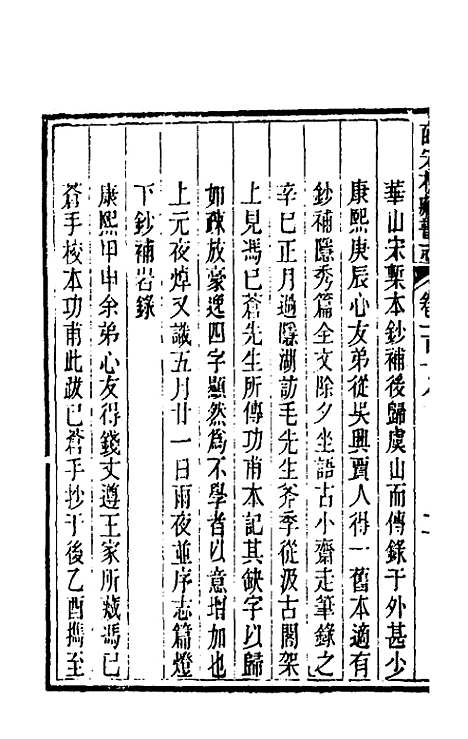 皕宋樓藏書志 卷一百十八
華山宋槧本鈔補後歸虞山而傳錄于外甚少
康熙庚辰心友弟從吳興賈人得一舊本適有
鈔補隱秀篇全文除夕坐語古小齋走筆錄之
辛巳正月過隱湖訪毛先生斧季從汲古閣架
上見馮已蒼先生所傳功甫本記其缺字以歸
如疎放豪逸四字顯然為不學者以意增加也
上元夜焯又識五月廿一日雨夜並序志篇燈
下鈔補岩錄
康熙甲申余弟心友得錢丈遵王家所藏馮已
蒼手校本功甫此跋已蒼手抄于後乙酉攜至